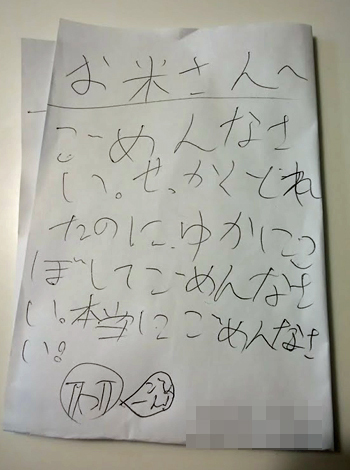 お米さんへ
ごめんなさ
い。せっかくとれ
たのに、ゆかにこ
ぼしてごめんなさ
い。本当にごめんなさ
い。